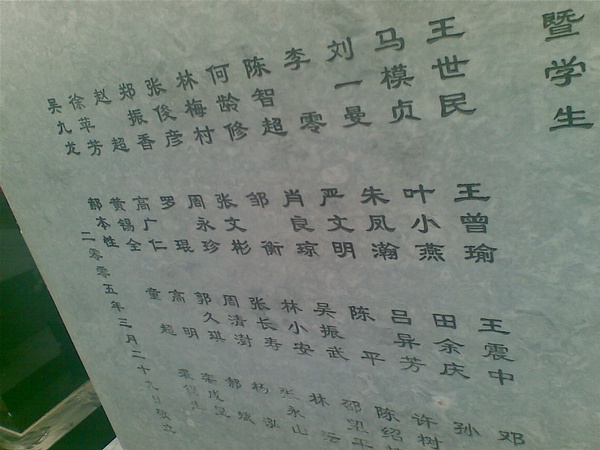 暨学生
王世民
马模贞
刘一曼
李零
陈智超
何龄修
林梅村
张俊彦
郑振香
赵超
徐苹芳
吴九龙
王曾瑜
叶小燕
朱凤瀚
严文明
肖良琼
邹衡
张文彬
周永珍
罗琨
高广仁
黄锡全
郝本性
王震中
田余庆
吕异芳
陈平
吴振武
林小安
张长寿
周清澍
郭久祺
高明
童超
邓
孙
许树
陈绍
邵望平
林沄
张永山
杨泓
郝斌
二零零五年三月二十九日敬立